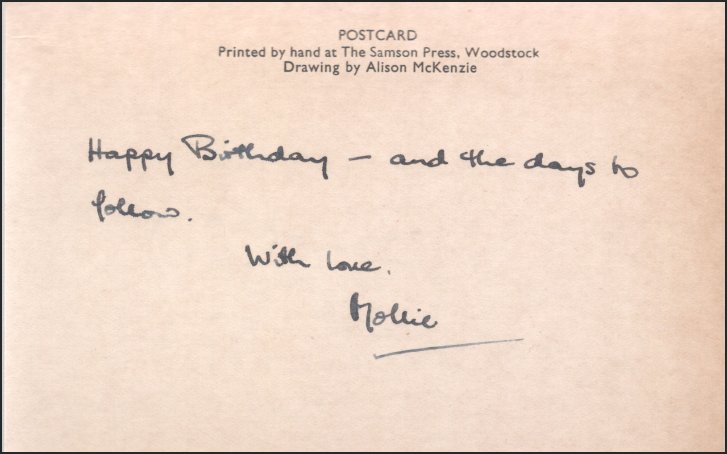 POSTCARD
Printed by hand at The Samson Press, Woodstock
Drawing by Alison McKenzie
Happy Birthday – and the days to
follow.
With love.
Mollie